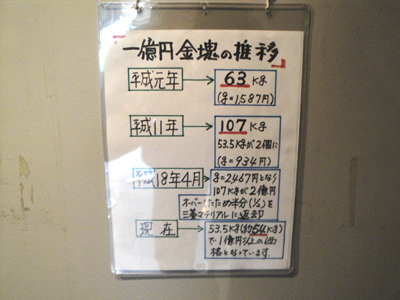 一億円金塊の推移
平成元年 → 63Kg
(g=1,587円)
平成11年 → 107Kg
53.5Kgが2個に
(g=934円)
18年4月 → g=2,467円となり
107Kgが2億円
オーバーしたため半分(1/2)を
三菱マテリアルに返却
現在 → 53.5Kg(約54Kg)
で1億円以上の価
格となっています.